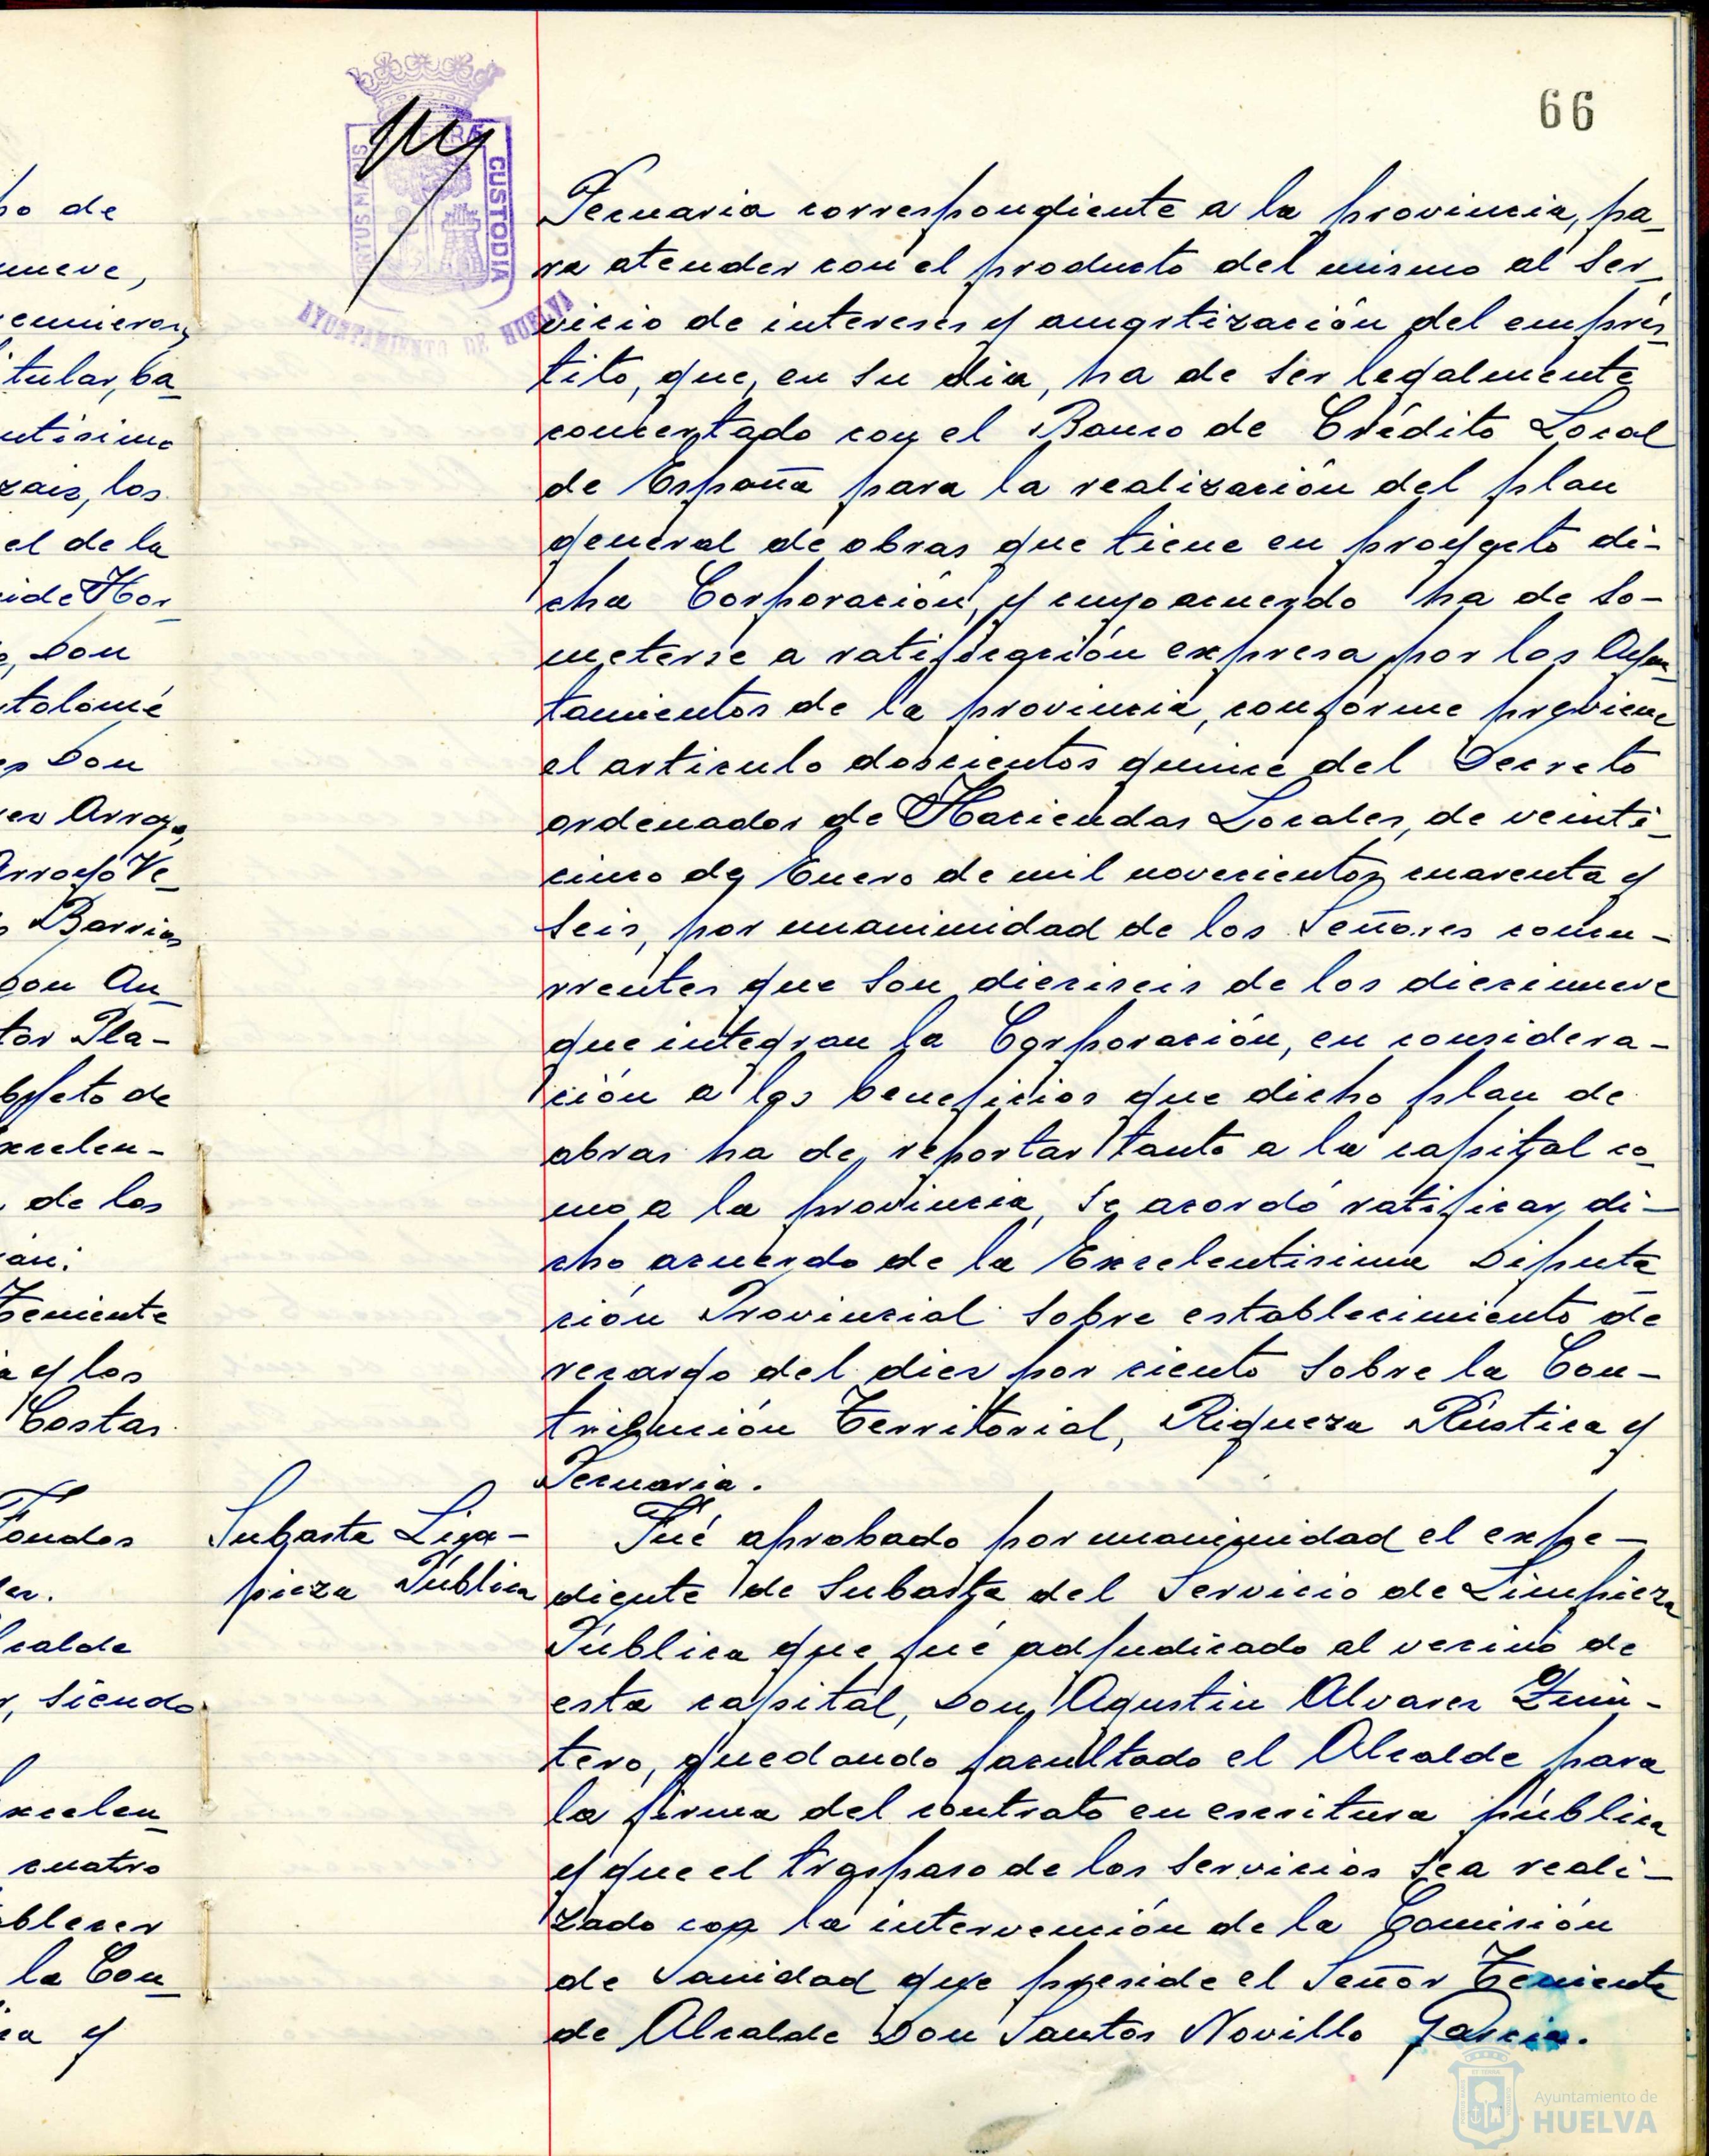 66
PORTUS MARIS
CUSTODIA
AYUNTAMIENTO DE HUELVA
Pecuaria correspondiente a la provincia, pa_
ra atender con el producto del mismo al ser_
vicio de intereses y amortización del emprés_
tito, que, en su dia, ha de ser legalmente
concertado con el Banco de Crédito Local
de España para la realización del plan
general de obras que tiene en proyecto di-
cha Corporación, y cuyo acuerdo ha de so-
meterse a ratificación expresa por los Ayun_
tamientos de la provincia, conforme previene
el articulo doscientos quince del Decreto
ordenador de Haciendas Locales, de veinti_
cinco de Enero de mil novecientos cuarenta y
seis, por unanimidad de los Señores concu-
rrentes que son dieciseis de los diecinueve
que integran la Corporación, en considera-
ción a los beneficios que dicho plan de
obras ha de reportar tanto a la capital co_
mo a la provincia, se acordó ratificar di-
cho acuerdo de la Excelentisima Diputa_
ción Provincial sobre establecimiento de
recargo del diez por ciento sobre la Con-
tribución Territorial, Riqueza Rústica y
Pecuaria.
Subasta Lim-
pieza Pública
Fué aprobado por unanimidad el expe-
diente de Subasta del Servicio de Limpieza
Pública que fué adjudicado al vecino de
esta capital, Don Agustin Alvarez Quin-
tero, quedando facultado el Alcalde para
la firma del contrato en escritura pública
y que el traspaso de los servicios sea reali-
zado con la intervención de la Comisión
de Sanidad que preside el Señor Teniente
de Alcalde Don Santos Novillo Garcia.
de
nueve,
tular, ba_
los
el de la
ide Hor_
Don
tolomé
Don
Arroyo Ve_
Barrios
Don An_
tor Pla-
objeto de
xcelen-
de los
Teniente
y los
Costas
Fondos
calde
, siendo
xcelen_
cuatro
blecer
la Con_
y
Ayuntamiento de
HUELVA